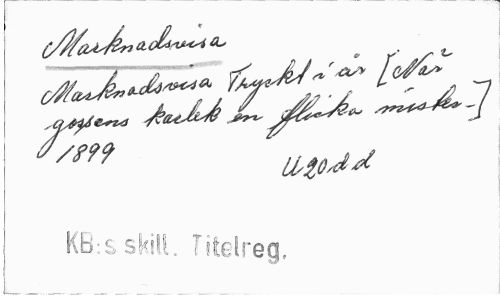 Marknadsvisa
Marknadsvisa Tryckt i år [När
gossens kaerlek en flicka mister-]
1899
U 20 d d
KB:s skill. Titelreg.